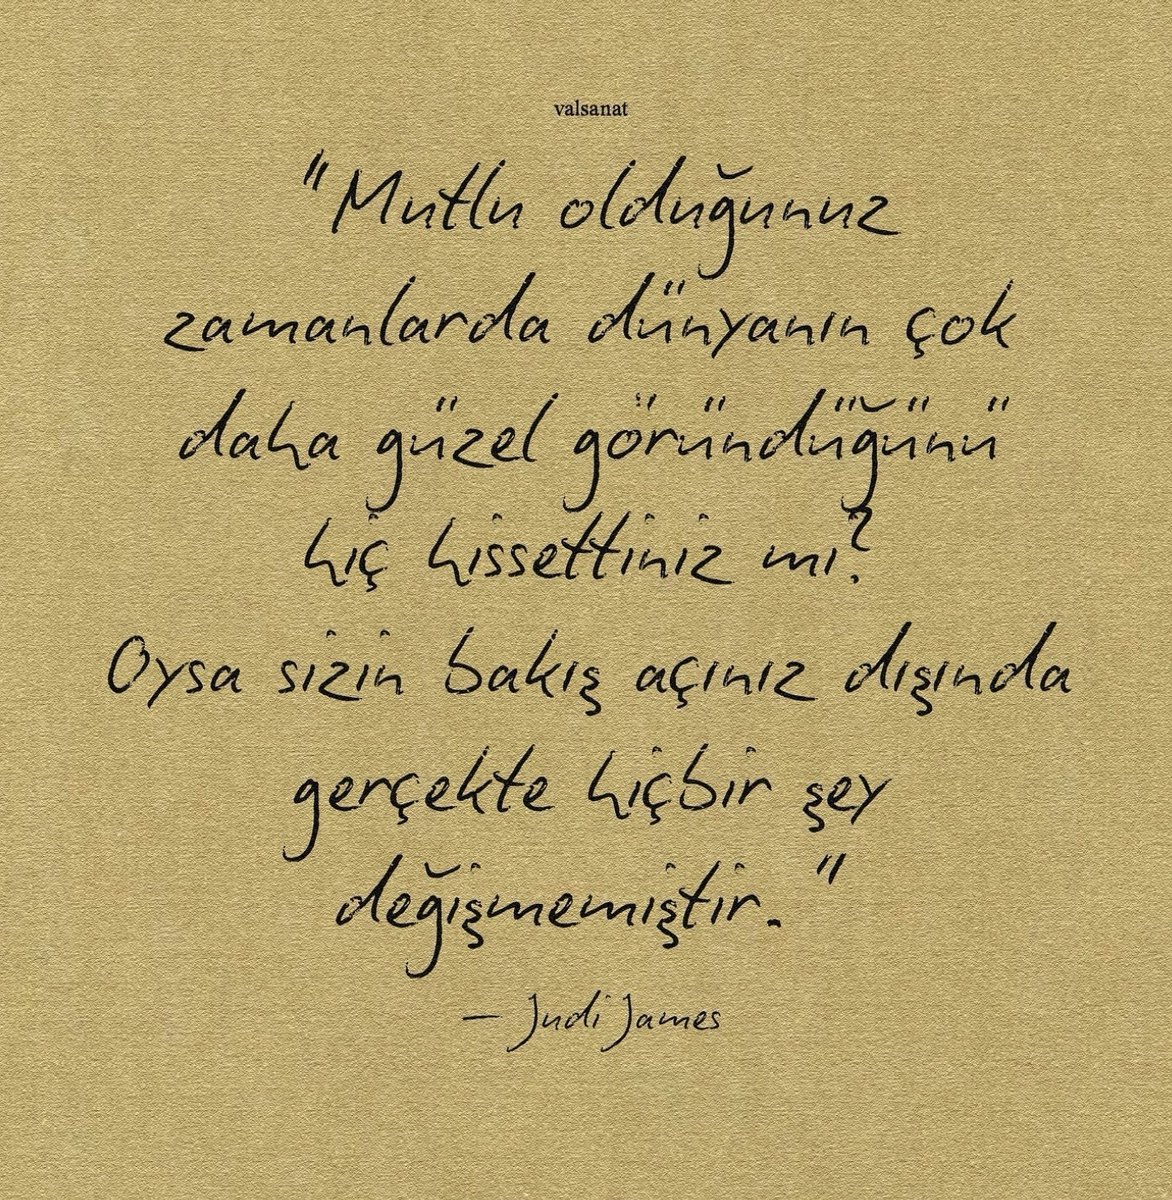 valsanat
"Mutlu olduğunuz
zamanlarda dünyanın çok
daha güzel göründüğünü
hiç hissettiniz mi?
Oysa sizin bakış açınız dışında
gerçekte hiçbir şey
değişmemiştir."
— Judi James